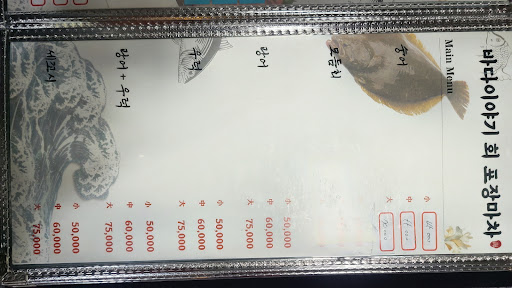 바다이야기 회 포장마차
Main Menu
숭어
小
中
大
모둠회
광어
小 50,000
中 60,000
大 75,000
우럭
小 50,000
中 60,000
大 75,000
광어 + 우럭
小 50,000
中 60,000
大 75,000
세꼬시
小 50,000
中 60,000
大 75,000